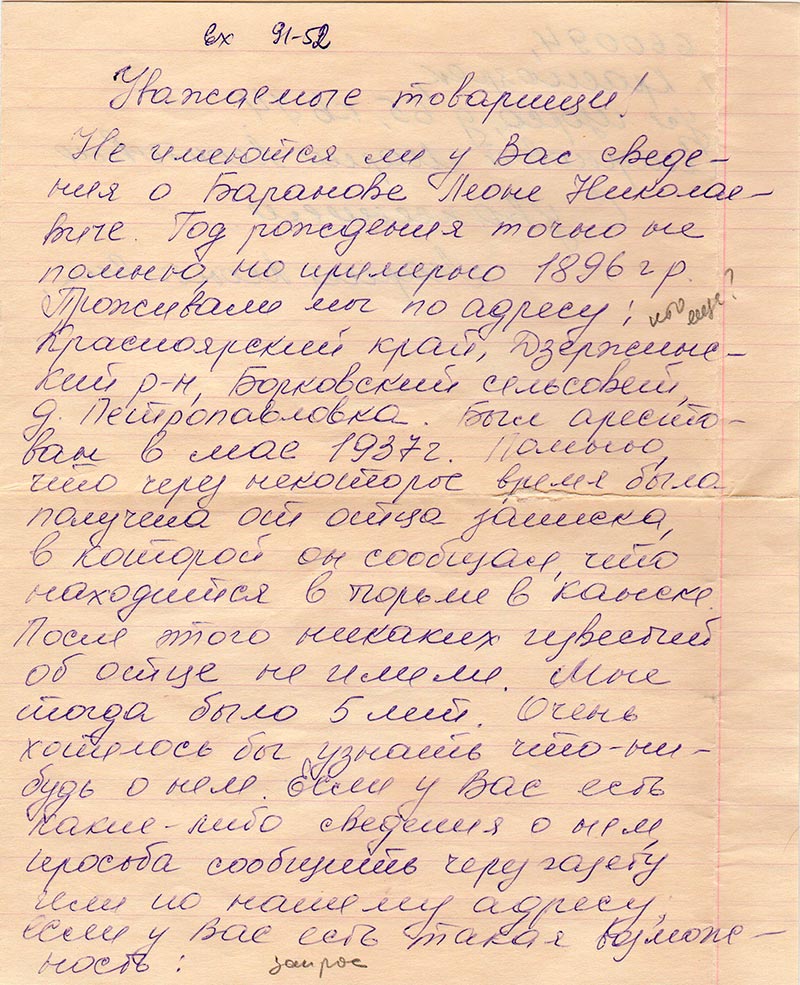 вх 91-52
Уважаемые товарищи!
Не имеются ли у Вас сведе-
ния о Баранове Леоне Николае-
виче. Год рождения точно не
помню, но примерно 1896 г р.
Проживали мы по адресу:
кто еще?
Красноярский край, Дзержинс-
кий р-н, Борковский сельсовет,
д. Петропавловка. Был аресто-
ван в мае 1937г. Помню,
что через некоторое время была
получена от отца записка,
в которой он сообщал, что
находится в тюрьме в Канске.
После этого никаких известий
об отце не имели. Мне
тогда было 5 лет. Очень
хотелось бы узнать что-ни-
будь о нем. Если у Вас есть
какие-либо сведения о нем,
просьба сообщить через газету
или по нашему адресу,
если у Вас есть такая возмож-
ность:
запрос